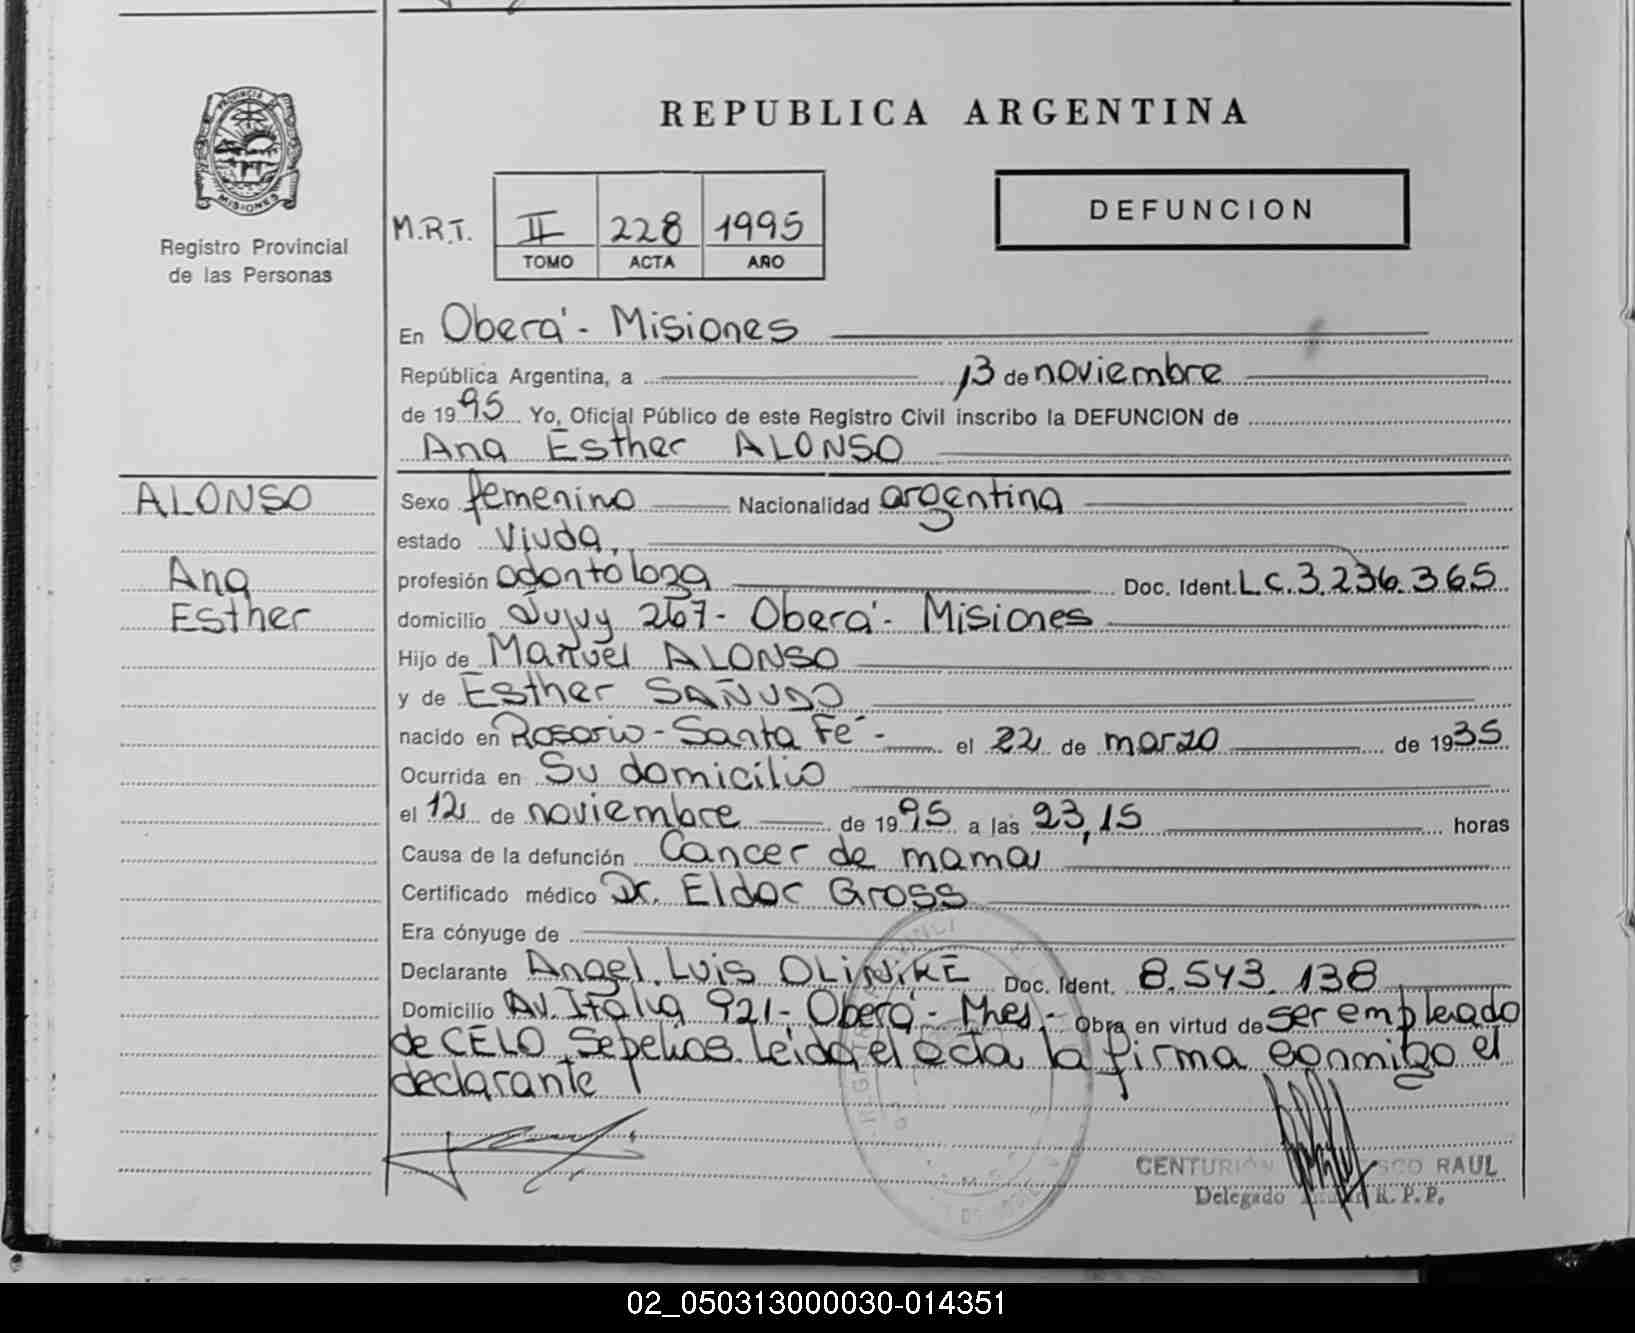 PROVINCIA DE
MISIONES
Registro Provincial
de las Personas
REPUBLICA ARGENTINA
M.R.T. II 228 1995
TOMO ACTA AÑO
DEFUNCION
En Oberá - Misiones
República Argentina, a 13 de noviembre
de 1995 Yo, Oficial Público de este Registro Civil inscribo la DEFUNCION de
Ana Esther ALONSO
ALONSO
Ana
Esther
Sexo femenino Nacionalidad argentina
estado Viuda,
profesión odontóloga Doc. Ident. L.C. 3.236.365
domicilio Jujuy 267 - Oberá - Misiones
Hijo de Manuel ALONSO
y de Esther SAÑUDO
nacido en Rosario - Santa Fé - el 22 de marzo de 1935
Ocurrida en Su domicilio
el 12 de noviembre de 1995 a las 23,15 horas
Causa de la defunción Cancer de mama
Certificado médico Dr. Eldor Gross
Era cónyuge de
Declarante Angel Luis Doc. Ident. 8.543.138
Domicilio Av. Italia 921 - Oberá - Mnes. - Obra en virtud de ser empleado
de CELO Sepelios. Leida el acta la firma conmigo el
declarante
CENTURIÓN RAUL
Delegado R.P.P.
02_050313000030-014351